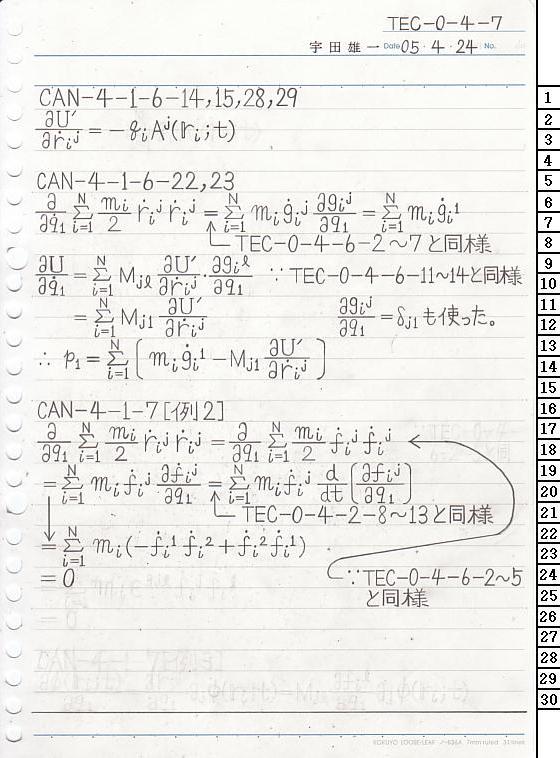 TEC-0-4-7
宇田雄一 Date 05・4・24 No.
CAN-4-1-6-14,15,28,29
∂U′/∂ṙᵢʲ = -qᵢAʲ(𝕣ᵢ;t)
CAN-4-1-6-22,23
∂/∂q̇₁ Σ_{i=1}^{N} mᵢ/2 ṙᵢʲ ṙᵢʲ = Σ_{i=1}^{N} mᵢ ġᵢʲ ∂gᵢʲ/∂q₁ = Σ_{i=1}^{N} mᵢ ġᵢ¹
TEC-0-4-6-2～7と同様
∂U/∂q̇₁ = Σ_{i=1}^{N} Mⱼℓ ∂U′/∂ṙᵢʲ · ∂gᵢℓ/∂q₁ ∵ TEC-0-4-6-11～14と同様
= Σ_{i=1}^{N} Mⱼ₁ ∂U′/∂ṙᵢʲ ∂gᵢʲ/∂q₁ = δⱼ₁も使った。
∴ p₁ = Σ_{i=1}^{N} [ mᵢ ġᵢ¹ - Mⱼ₁ ∂U′/∂ṙᵢʲ ]
CAN-4-1-7[例2]
∂/∂q₁ Σ_{i=1}^{N} mᵢ/2 ṙᵢʲ ṙᵢʲ = ∂/∂q₁ Σ_{i=1}^{N} mᵢ/2 ḟᵢʲ ḟᵢʲ
= Σ_{i=1}^{N} mᵢ ḟᵢʲ ∂ḟᵢʲ/∂q₁ = Σ_{i=1}^{N} mᵢ ḟᵢʲ d/dt [∂fᵢʲ/∂q₁]
TEC-0-4-2-8～13と同様
= Σ_{i=1}^{N} mᵢ(-ḟᵢ¹ ḟᵢ² + ḟᵢ² ḟᵢ¹)
= 0
∵TEC-0-4-6-2～5
と同様
KOKUYO LOOSE-LEAF ノ-836A 7mm ruled 31 lines
1
2
3
4
5
6
7
8
9
10
11
12
13
14
15
16
17
18
19
20
21
22
23
24
25
26
27
28
29
30